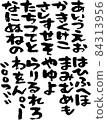 あいうえお
かきくけこ
さしすせそ
たちつてと
なにぬねの
はひふへほ
まみむめも
やゆよ
らりるれろ
わをん
84313956